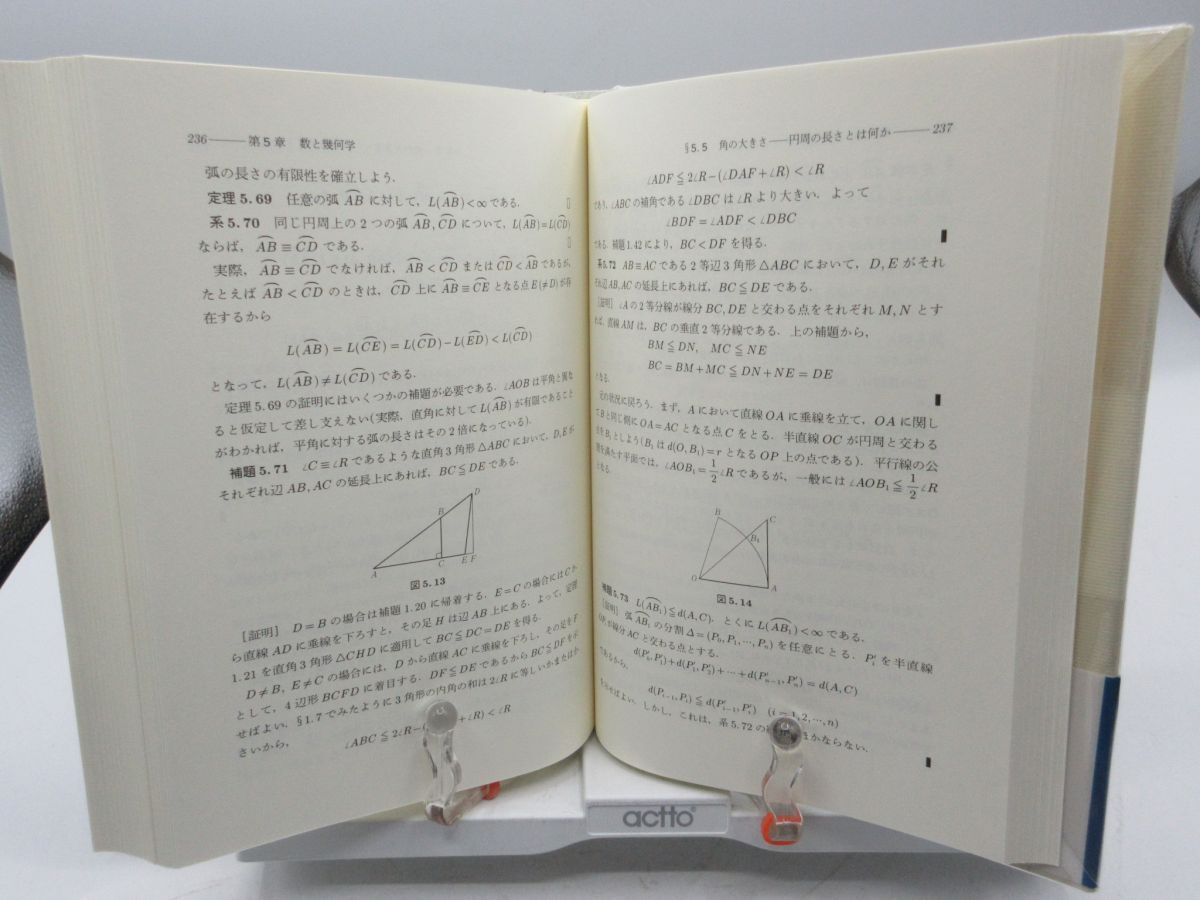 236 第5章 数と幾何学
弧の長さの有限性を確立しよう.
定理5.69 任意の弧 A͡B に対して, L(A͡B)<∞である. ▯
系5.70 同じ円周上の2つの弧 A͡B, C͡D について, L(A͡B)=L(C͡D)
ならば, A͡B≡C͡D である. ▯
実際, A͡B≡C͡D でなければ, A͡B<C͡D または C͡D<A͡B であるが,
たとえば A͡B<C͡D のときは, C͡D 上に A͡B≡C͡E となる点E(≠D)が存
在するから
L(A͡B)=L(C͡E)=L(C͡D)−L(E͡D)<L(C͡D)
となって, L(A͡B)≠L(C͡D)である.
定理5.69の証明にはいくつかの補題が必要である. ∠AOBは平角と異な
ると仮定して差し支えない(実際, 直角に対してL(A͡B)が有限であること
がわかれば, 平角に対する弧の長さはその2倍になっている).
補題5.71 ∠C≡∠Rであるような直角3角形△ABCにおいて, D,Eが
それぞれ辺AB,ACの延長上にあれば, BC≦DEである.
D
B
A
C
E
F
図5.13
[証明] D=Bの場合は補題1.20に帰着する. E=Cの場合にはCか
ら直線ADに垂線を下ろすと, その足Hは辺AB上にある. よって, 定理
1.21を直角3角形△CHDに適用してBC≦DC=DEを得る.
D≠B, E≠Cの場合には, Dから直線ACに垂線を下ろし, その足をF
として, 4辺形BCFDに着目する. DF≦DEであるからBC≦DFを示
せばよい. §1.7でみたように3角形の内角の和は2∠Rに等しいかまたは小
さいから,
∠ABC≦2∠R−( +∠R)<∠R
§5.5 角の大きさ——円周の長さとは何か 237
∠ADF≦2∠R−(∠DAF+∠R)<∠R
であり, ∠ABCの補角である∠DBCは∠Rより大きい. よって
∠BDF=∠ADF<∠DBC
である. 補題1.42により, BC<DFを得る.
系5.72 AB≡ACである2等辺3角形△ABCにおいて, D,Eがそれ
ぞれ辺AB,ACの延長上にあれば, BC≦DEである.
[証明] ∠Aの2等分線が線分BC,DEと交わる点をそれぞれM,Nとす
れば, 直線AMは, BCの垂直2等分線である. 上の補題から,
BM≦DN, MC≦NE
BC=BM+MC≦DN+NE=DE
となる.
元の状況に戻ろう. まず, Aにおいて直線OAに垂線を立て, OAに関し
てBと同じ側にOA=ACとなる点Cをとる. 半直線OCが円周と交わる
点をB₁としよう(B₁はd(O,B₁)=rとなるOP上の点である). 平行線の公
理を満たす平面では, ∠AOB₁=1/2∠Rであるが, 一般には∠AOB₁≦1/2∠R
となる.
B
C
B₁
O
A
図5.14
補題5.73 L(A͡B₁)≦d(A,C). とくにL(A͡B₁)<∞である.
[証明] 弧A͡B₁の分割Δ=(P₀,P₁,⋯,Pₙ)を任意にとる. P′ᵢを半直線
OPᵢが線分ACと交わる点とする.
d(P′₀,P′₁)+d(P′₁,P′₂)+⋯+d(P′ₙ₋₁,P′ₙ)=d(A,C)
であるから,
d(Pᵢ₋₁,Pᵢ)≦d(P′ᵢ₋₁,P′ᵢ) (i=1,2,⋯,n)
を示せばよい. しかし, これは, 系5.72の ほかならない.
actto